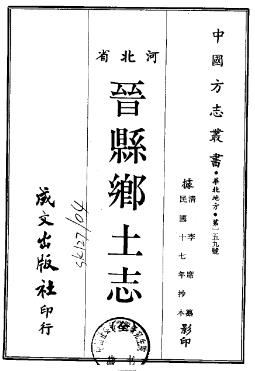 中國方志叢書・華北地方・第一五九號
據清李席纂
民國十七年抄本影印
河北省
晉縣鄉土志
(全)
成文出版社印行